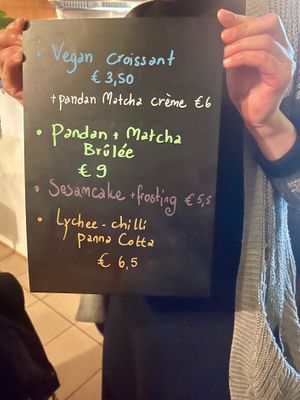 • Vegan Croissant
€ 3,50
+pandan Matcha crème €6
• Pandan + Matcha
Brûlée
€ 9
• Sesamcake +frosting € 5,5
• Lychee - chilli
panna Cotta
€ 6,5